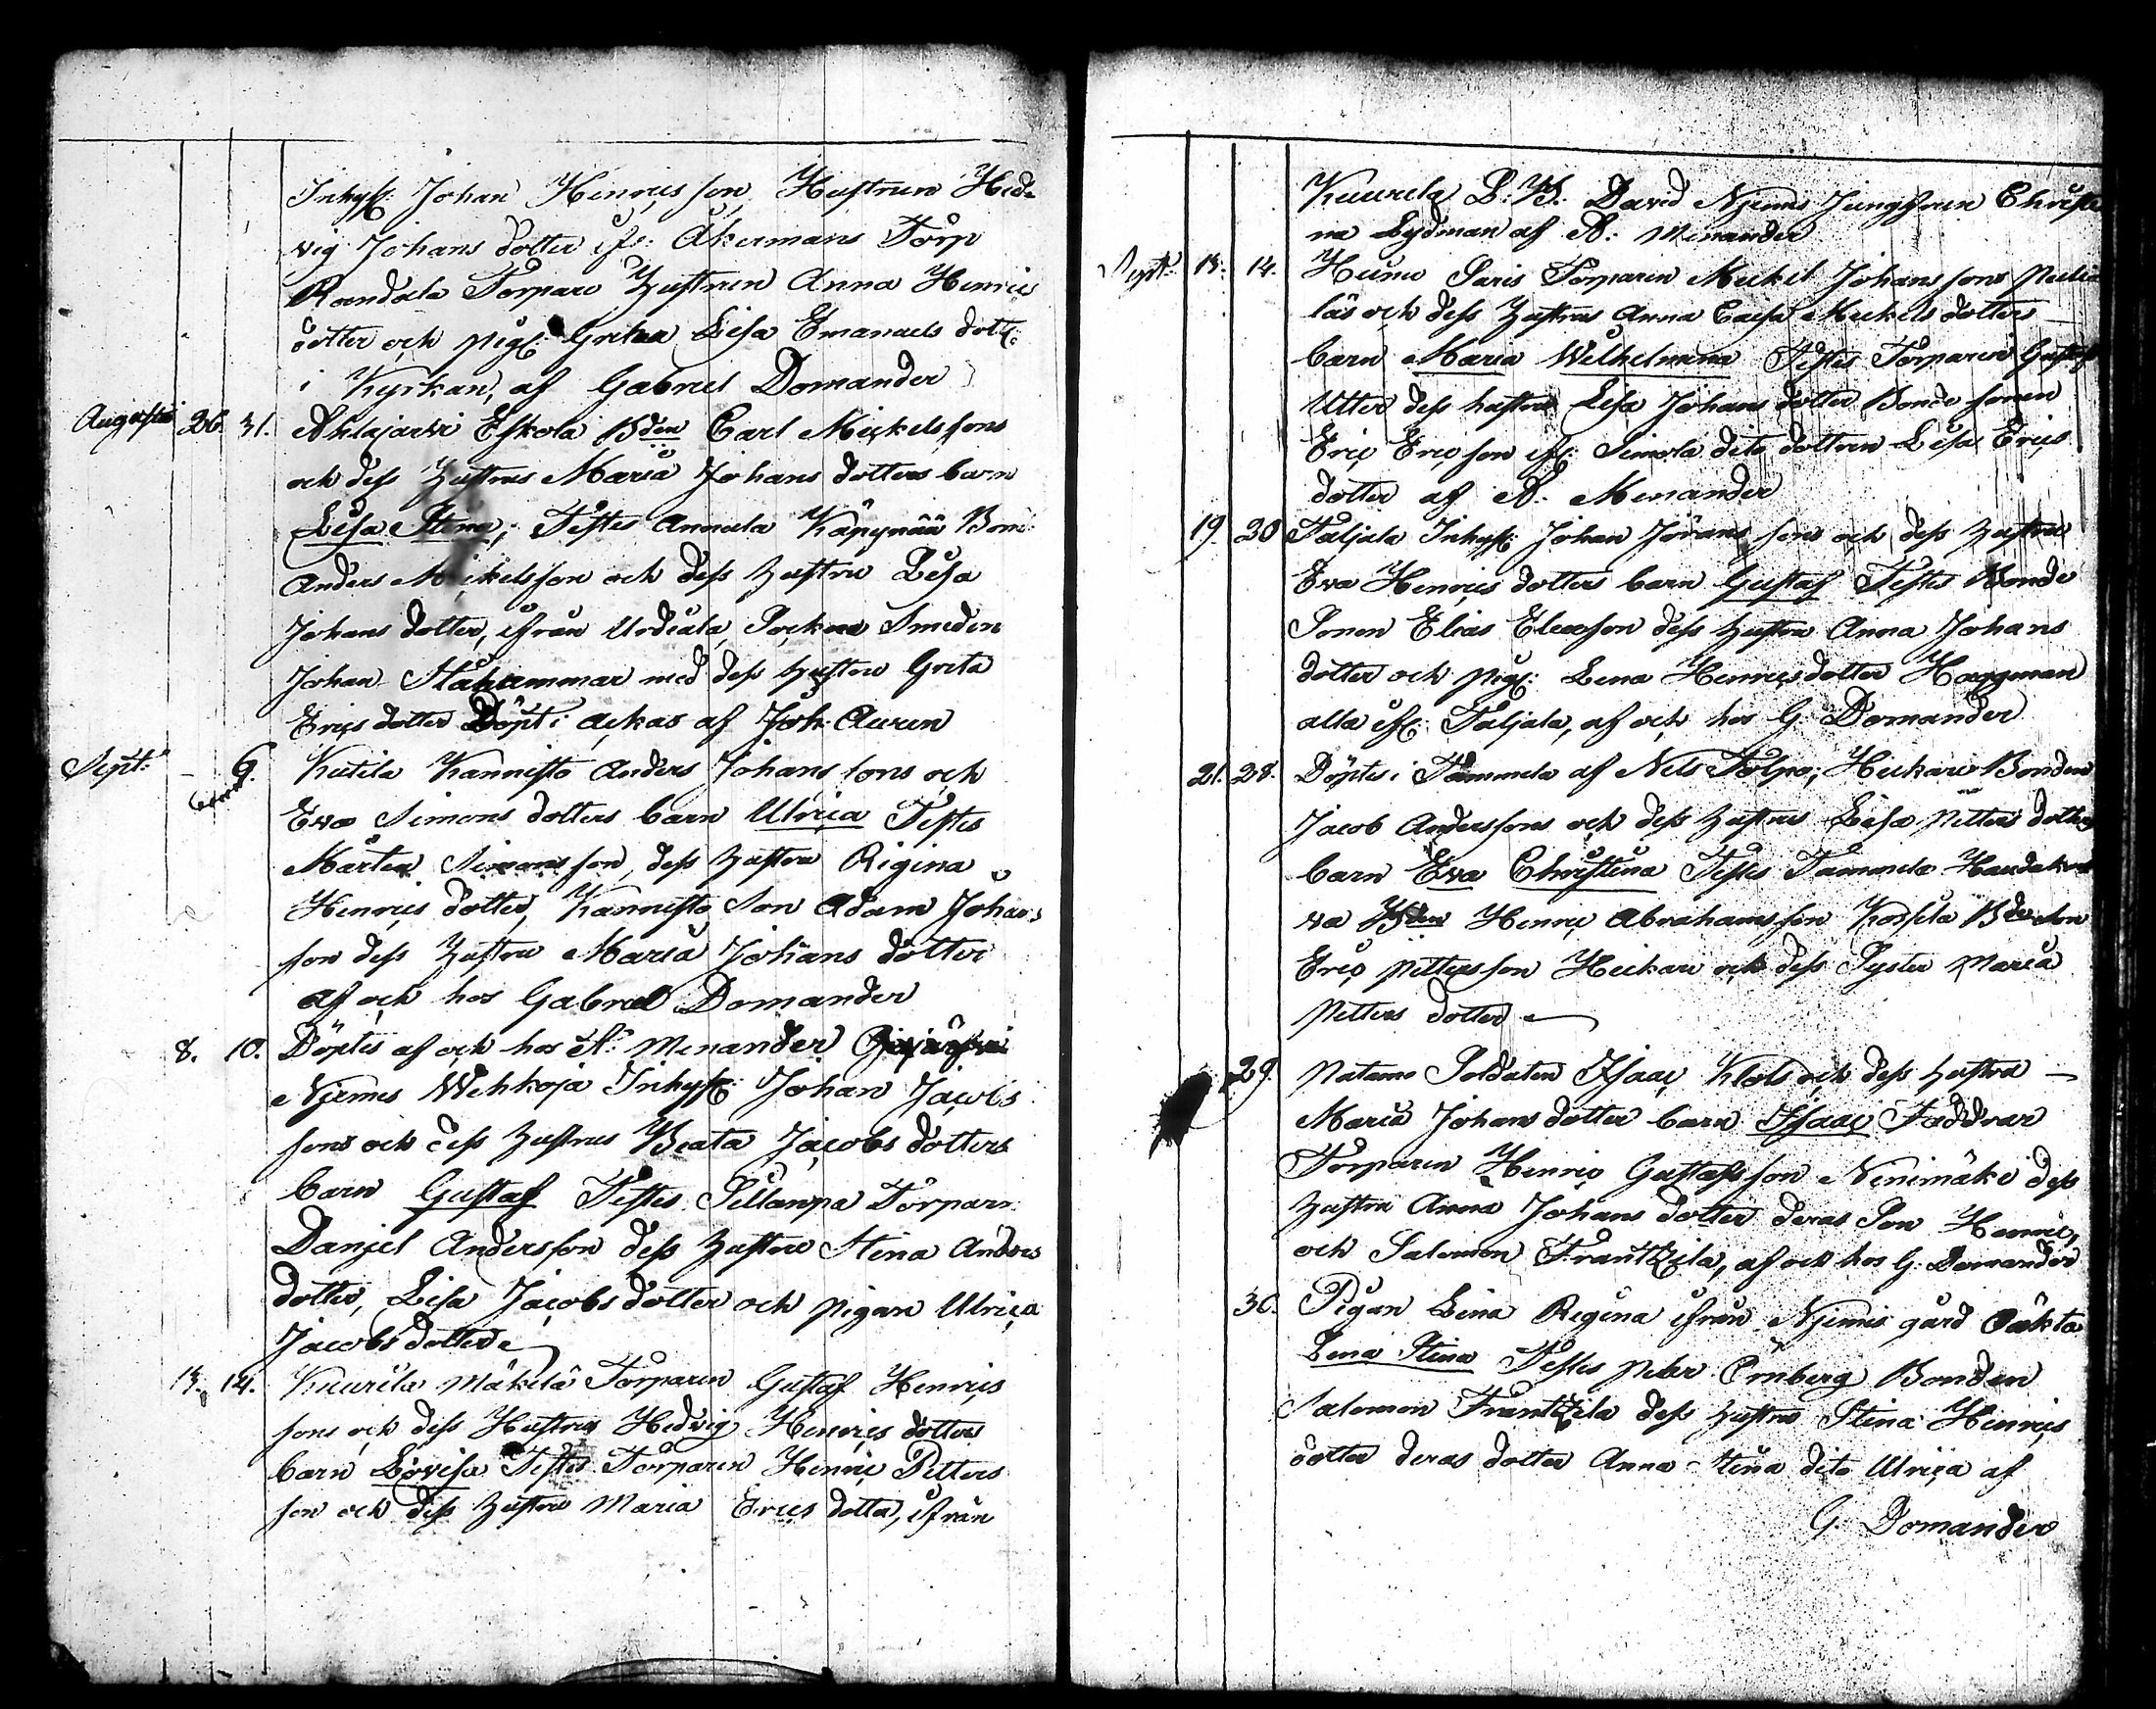 Inhyss: Johan Henrics son Hustrun Hed-
vig Johans dotter ifr: Åkermans Torp
Torpare Hustrun Anna Henrics
dotter och pig: Greta Lisa Emanuels dott:
i Kyrkan, af Gabriel Domander
Augusti 26. 31. Ahlajarvi Eskola Bden Carl Mickels sons
och dess Hustrus Maria Johans dotters barn
Lisa Stina; Testes Annula Käpynää Bon:
Anders Mickelsson och dess Hustru Lisa
Johans dotter, ifrån Urdiala Sockne Smeden
Johan Stålhammar med dess Hustru Greta
Erics dotter Döpt i Ackas af Joh. Auren
Sept: - 6. Kutila Kannisto Anders Johans sons och
Eva Simons dotters barn Ulrica Testes
Mårten Simonsson, dess Hustru Rigina
Henrics dotter, Kannisto Son Adam Johans
son dess Hustru Maria Johans dotter
af och hos Gabriel Domander
8. 10. Döptes af och hos A: Menander
Njemis Wehkoja Inhyss: Johan Jacobs
sons och dess Hustrus Beata Jacobs dotters
barn Gustaf Testes Sillanpä Torparn
Danjel Andersson dess Hustru Stina Anders
dotter, Lisa Jacobs dotter och pigan Ulrica
Jacobs dotter
13. 14. Kuurila Mäkilä Torparen Gustaf Henrics
sons och dess Hustrus Hedvig Henrics dotters
barn Lovisa Testes Torparen Henric Petters
son och dess Hustru Maria Erics dotter, ifrån
Kuurila B:B: David Njemis Jungfrun Christi
na Lydman af A: Menander
Sept: 13. 14. Hunu Saris Torparen Mickel Johans sons
och dess Hustrus Anna Caisa Mickels dotters
barn Maria Wilhelmina Testes Torparen Gustaf
Utter dess hustru Lisa Johans dotter Bonde sonen
Eric Ericson ifr: Simola dito dottren Lisa Erics
dotter af A: Menander
19. 20 Taljala Inhyss: Johan Jörans sons och dess Hustrus
Eva Henrics dotters barn Gustaf Testes Bonde
Sonen Elias Eliasson dess Hustru Anna Johans
dotter och pig: Lena Henrics dotter Haggman
alla ifr: Taljala, af och hos G: Domander
21. 28. Döptes i Tammela af Nils Tolpo; Heickari Bonden
Jacob Anderssons och dess Hustrus Lisa Petters dotters
barn Eva Christina Testes Tammela
Bden Henric Abrahamsson Bdeson
Eric Pettersson Heickari och dess Syster Maria
Petters dotter
29. Soldaten Isaac Klots och dess Hustru
Maria Johans dotter barn Isaac Faddrar
Torparen Henric Gustafsson Ninimäki dess
Hustru Anna Johans dotter deras Son Henric,
och Salomon Frantzila, af och hos G: Domander
30. Pigan Lena Regina ifrån Njemis gård oäkta
Lena Stina Testes Peter Örnberg Bonden
Salomon Frantzila dess Hustru Stina Henrics
dotter deras dotter Anna Stina dito Ulrica af
G: Domander